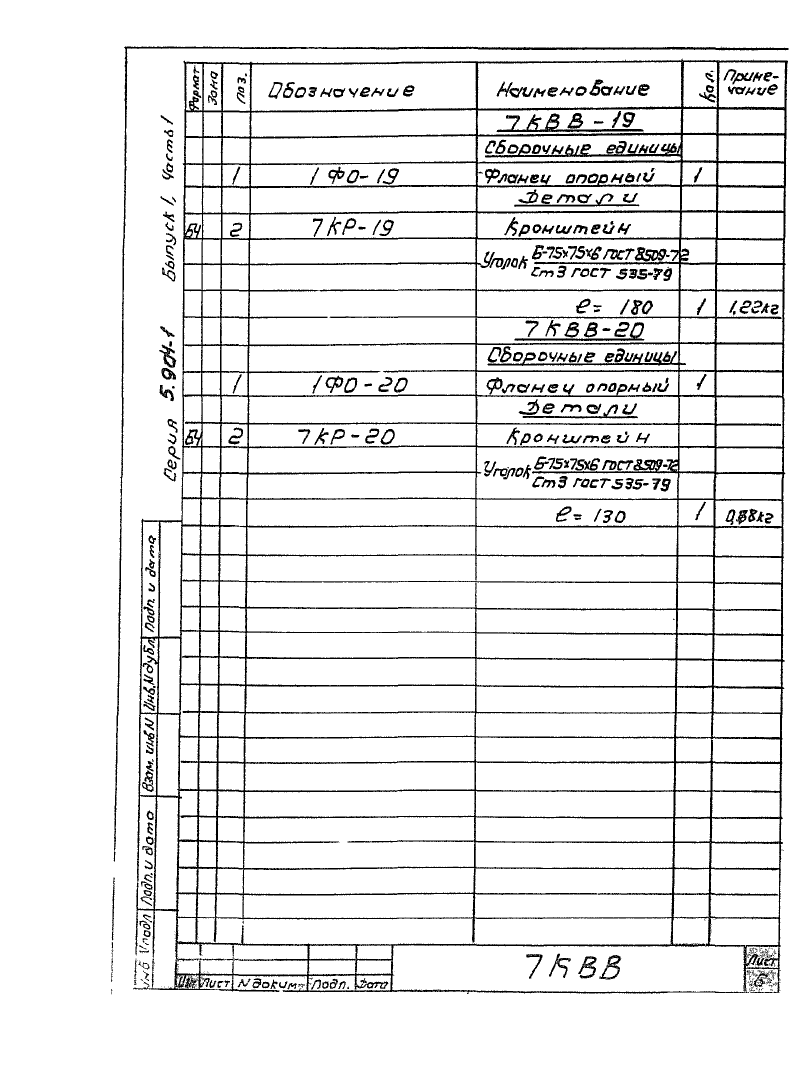 Серия 5.904-1 Выпуск 1, Часть 1
Формат Зона Поз. Обозначение Наименование Кол. Приме-
чание
7КВВ-19
Сборочные единицы
1 1ФО-19 Фланец опорный 1
Детали
БЧ 2 7КР-19 Кронштейн
Уголок Б-75х75х6 ГОСТ 8509-72
Ст3 ГОСТ 535-79
ℓ= 180 1 1,22кг
7КВВ-20
Сборочные единицы
1 1ФО-20 Фланец опорный 1
Детали
БЧ 2 7КР-20 Кронштейн
Уголок Б-75х75х6 ГОСТ 8509-72
Ст3 ГОСТ 535-79
ℓ= 130 1
Подп. и дата
Инв.N дубл.
Взам. инв N
Подп. и дата
Инв N подл
Изм Лист N докум. Подп. Дата
7КВВ
Лист